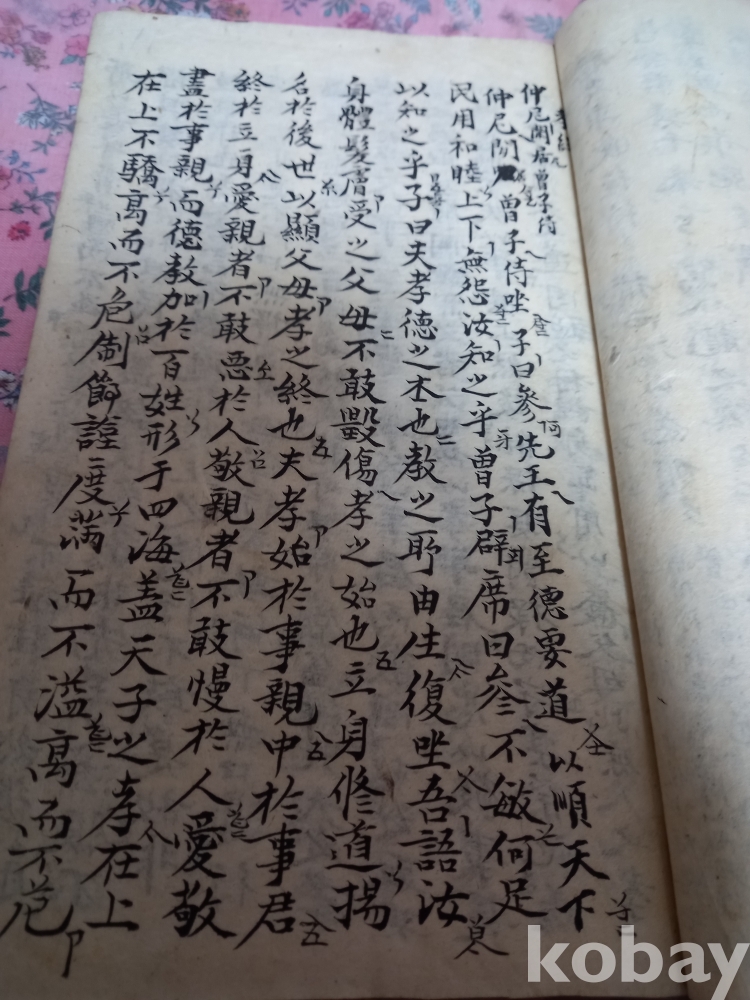 仲尼閒居曾子侍
仲尼閒曾子侍坐子曰參先王有至德要道以順天下
民用和睦上下無怨汝知之乎曾子辟席曰參不敏何足
以知之乎子曰夫孝德之本也教之所由生復坐吾語汝
身體髮膚受之父母不敢毀傷孝之始也立身修道揚
名於後世以顯父母孝之終也夫孝始於事親中於事君
終於立身愛親者不敢惡於人敬親者不敢慢於人愛敬
盡於事親而德教加於百姓形于四海蓋天子之孝在上
在上不驕高而不危制節謹度滿而不溢高而不危
kobay